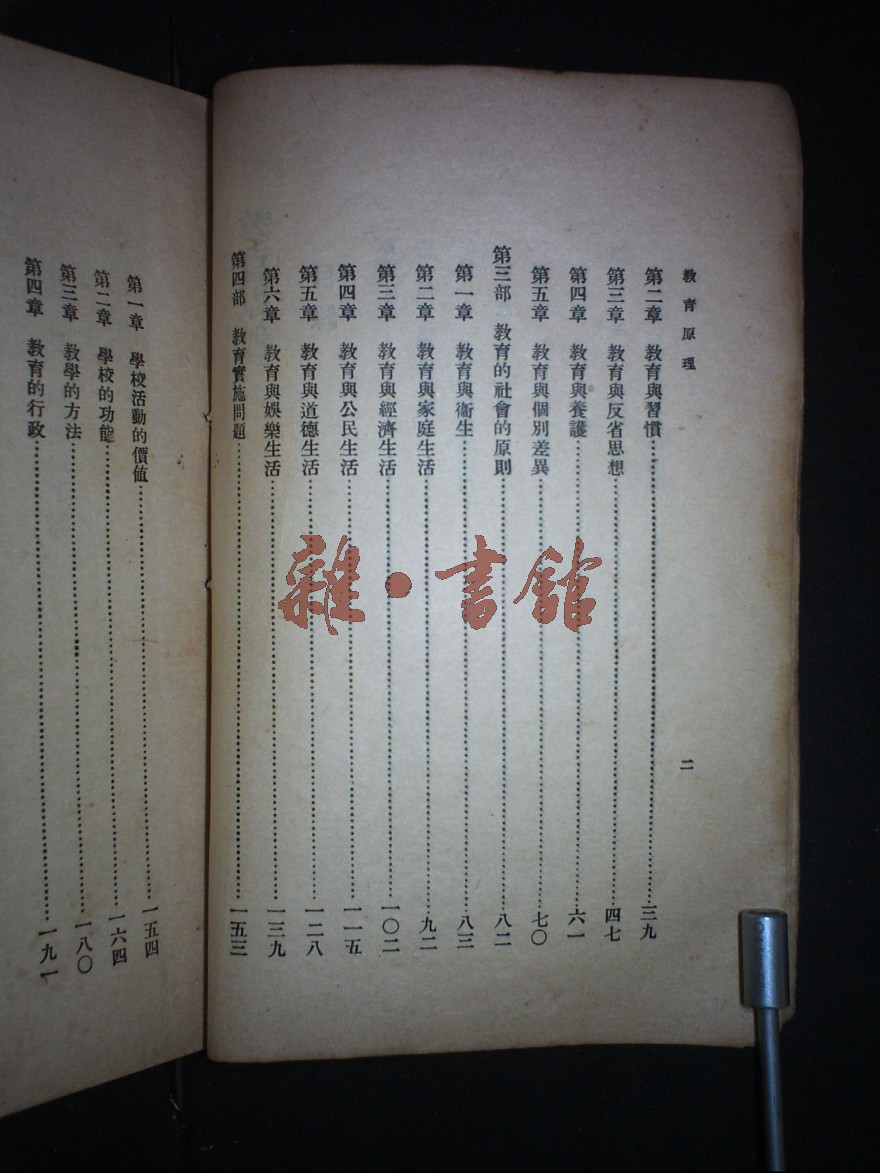 教育原理
二
第二章　教育與習慣……三九
第三章　教育與反省思想……四七
第四章　教育與養護……六一
第五章　教育與個別差異……七〇
第三部　教育的社會的原則……八二
第一章　教育與衞生……八三
第二章　教育與家庭生活……九二
第三章　教育與經濟生活……一〇二
第四章　教育與公民生活……一一五
第五章　教育與道德生活……一二八
第六章　教育與娛樂生活……一三九
第四部　教育實施問題……一五三
第一章　學校活動的價値……一五四
第二章　學校的功能……一六四
第三章　教學的方法……一八〇
第四章　教育的行政……一九一
雜·書館